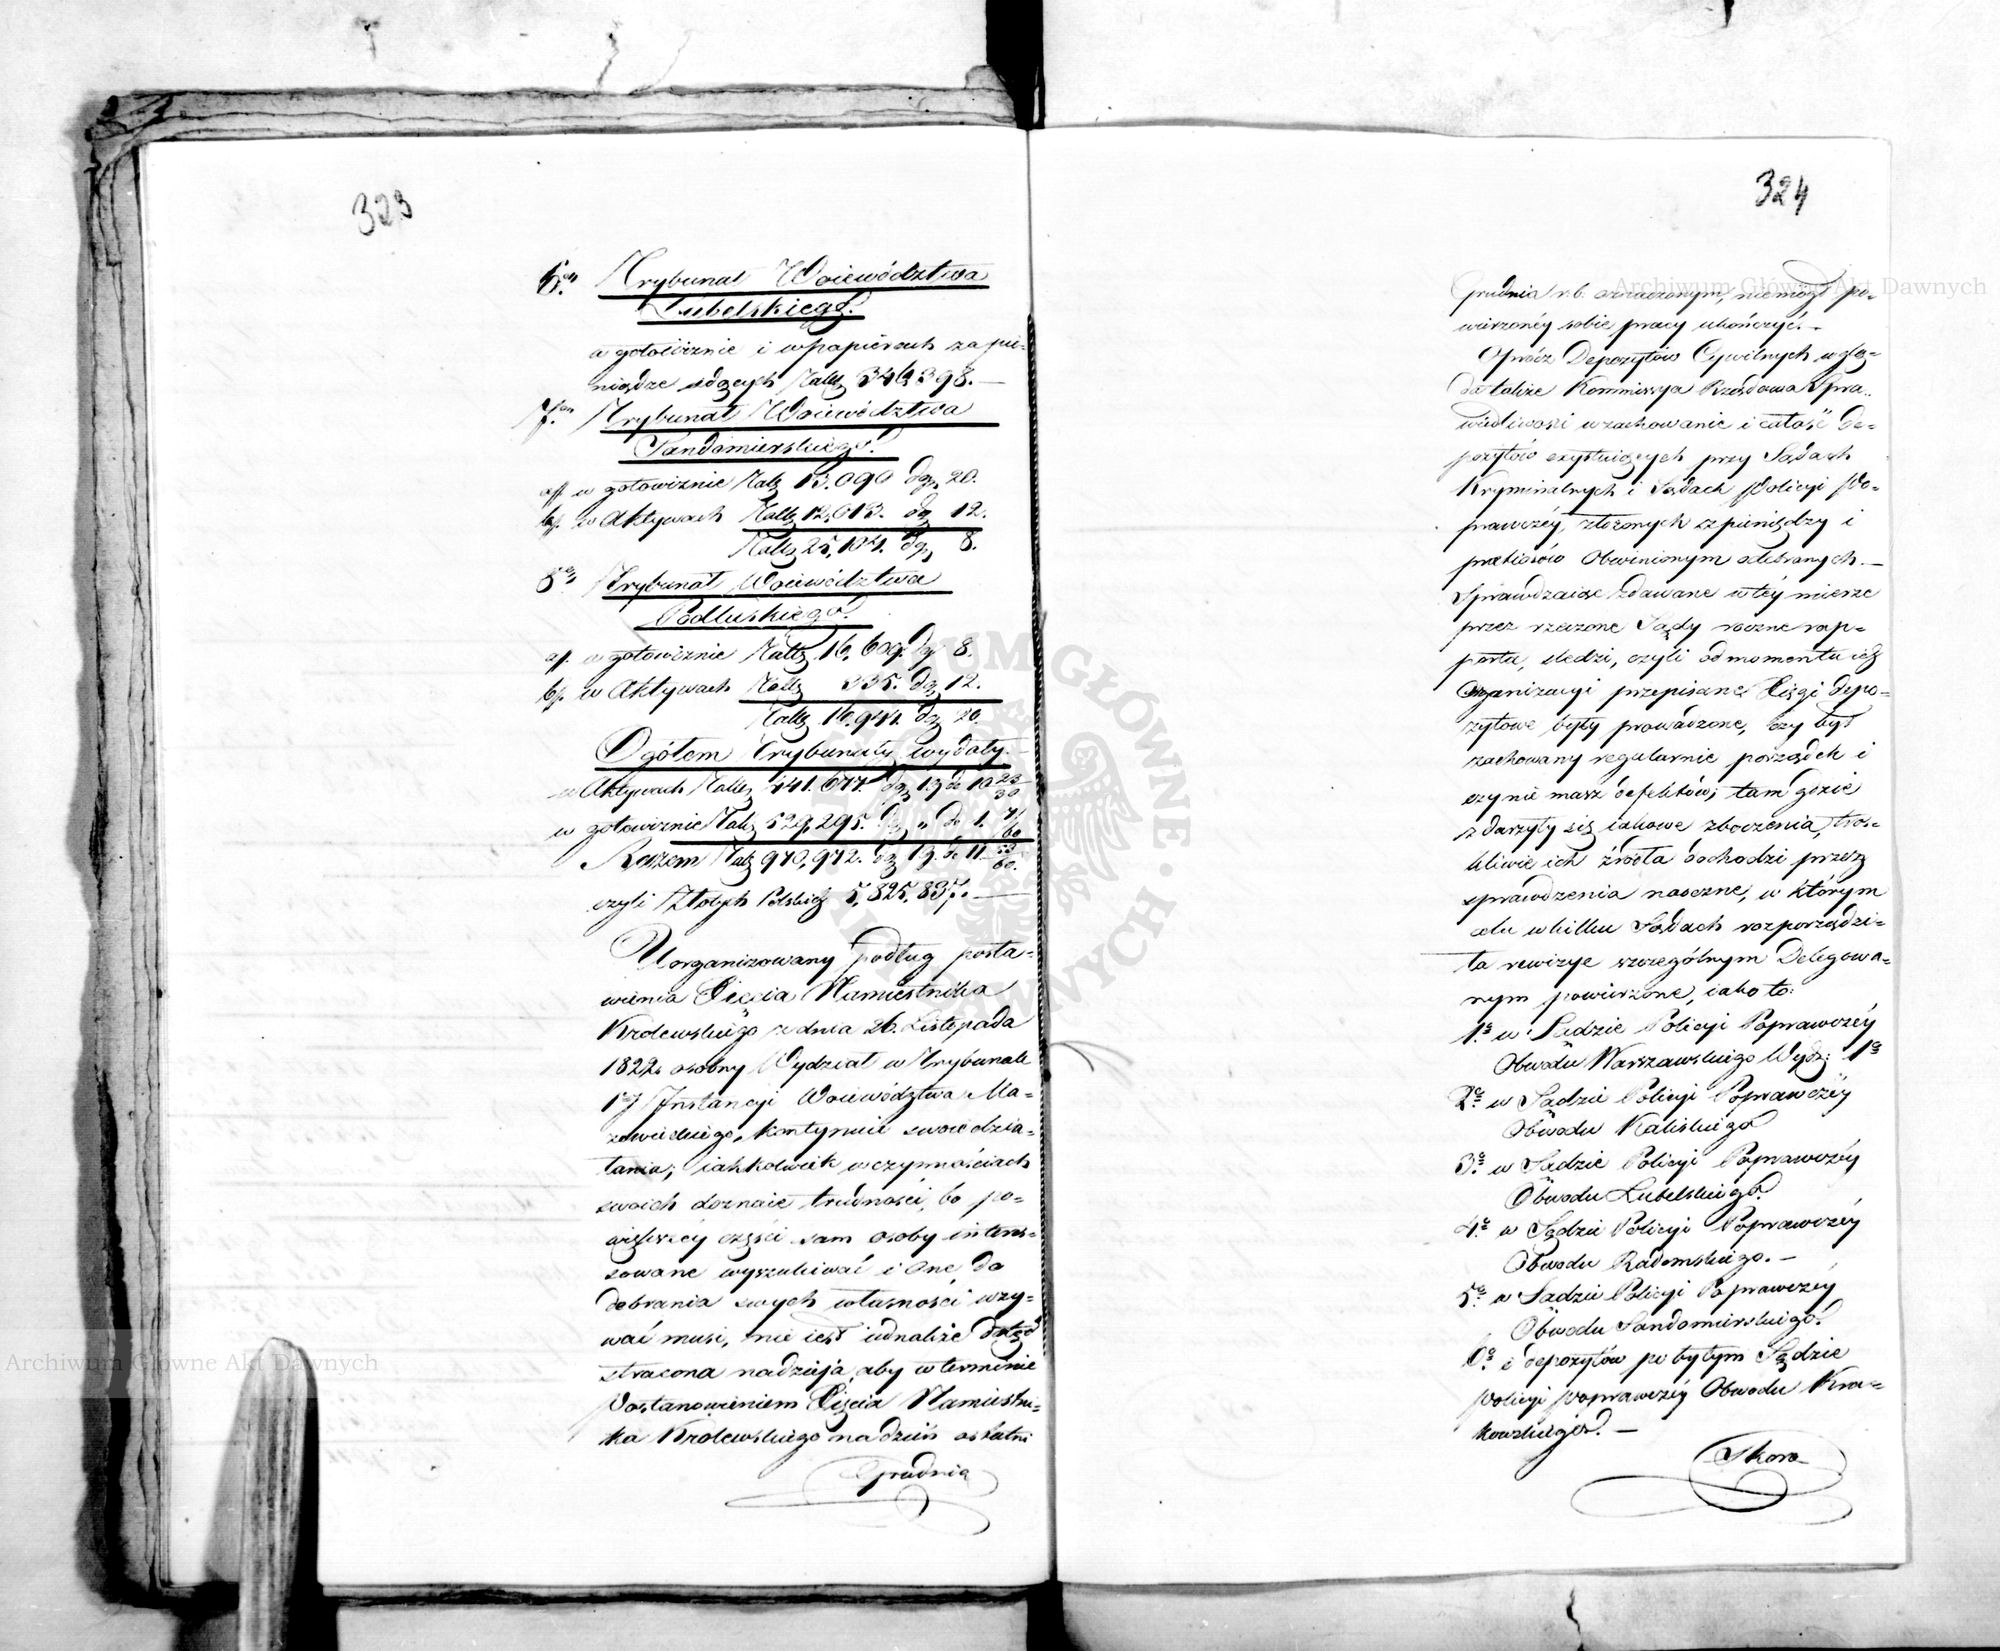 323
6º Trybunał Woiewództwa
Lubelskiego.
w gotowiznie i w papierach za pie-
niądze idących Tall
7º Trybunał Woiewództwa
Sandomierskiego.
a/. w gotowiznie Talę 13.090 dgę 20.
b/. w Aktywach Tallę 12,013. dgę 12.
Tallę 25,104. dgę 8.
8º Trybunał Woiewództwa
Podlaskiego.
a/. w gotowiznie Tallę 16,609. dgę 8.
b/. w Aktywach Tallę 335. dgę 12.
Tallę 16,944. dgę 20.
Ogółem Trybunały wydały.
w Aktywach Tallę 441.677. dgę 19 d 10 23/30
w gotowiznie Talę 529,295. dgę „ d 1. 7/60
Razem Talę 970,972. dgę 19. d 11 53/60.
czyli Złotych Polskich 5,825,837.
Uorganizowany podług posta-
wienia Xięcia Namiestnika
Królewskiego z dnia 26. Listopada
1822. osobny Wydział w Trybunale
1éy Instancyi Woiewództwa Ma-
zowieckiego, kontynuie swoie dzia-
łania; iakkolwiek w czynnościach
swoich doznaie trudności, bo po-
większéy części sam osoby intere-
sowane wyszukiwać i One do
odebrania swych własności wzy-
wać musi, nie iest iednakże dotąd
stracona nadzieja, aby w terminie
Postanowieniem Xięcia Namiestni-
ka Królewskiego na dzień ostatni
Grudnia
324
Grudnia r. b. oznaczonym, niemógł po-
wierzonéy sobie pracy ukończyć.-
Oprócz Depozytów Cywilnych wglą-
da także Kommissya Rządowa Spra-
wiedliwości w zachowanie i całość De-
pozytów exystuiących przy Sądach
Kryminalnych i Sądach Policyi Po-
prawczéy, złożonych z pieniędzy i
pretiosów Obwinionym odebranych.-
Sprawdzaiąc zdawane w téy mierze
przez rzeczone Sądy roczne rap-
porta, śledzi, czyli od momentu ich
Organizacyi przepisane Xięgi depo-
zytowe były prowadzone, czy był
zachowany regularnie porządek i
czy nie masz defektów; tam gdzie
zdarzyły się iakowe zboczenia, tros-
kliwie ich źródła dochodzi przez
sprawdzenia naoczne, w którym
celu w kilku Sądach rozporządzi-
ła rewizye szczególnym Delegowa-
nym powierzone, iako to:
1º w Sądzie Policyi Poprawczéy
Obwodu Warszawskiego Wydz: 1º
2º w Sądzie Policyi Poprawczéy
Obwodu Kaliskiego
3º w Sądzie Policyi Poprawczéy
Obwodu Lubelskiego.
4º w Sądzie Policyi Poprawczéy
Obwodu Radomskiego.-
5º w Sądzie Policyi Poprawczéy
Obwodu Sandomierskiego.
6º i depozytów po byłym Sądzie
Policyi Poprawczéy Obwodu Kra-
kowskiego.-
Skoro
Archiwum Główne Akt Dawnych
Archiwum Główne Akt Dawnych